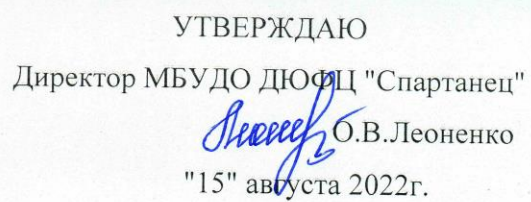 УТВЕРЖДАЮ
Директор МБУДО ДЮФЦ "Спартанец"
О.В.Леоненко
"15" августа 2022г.